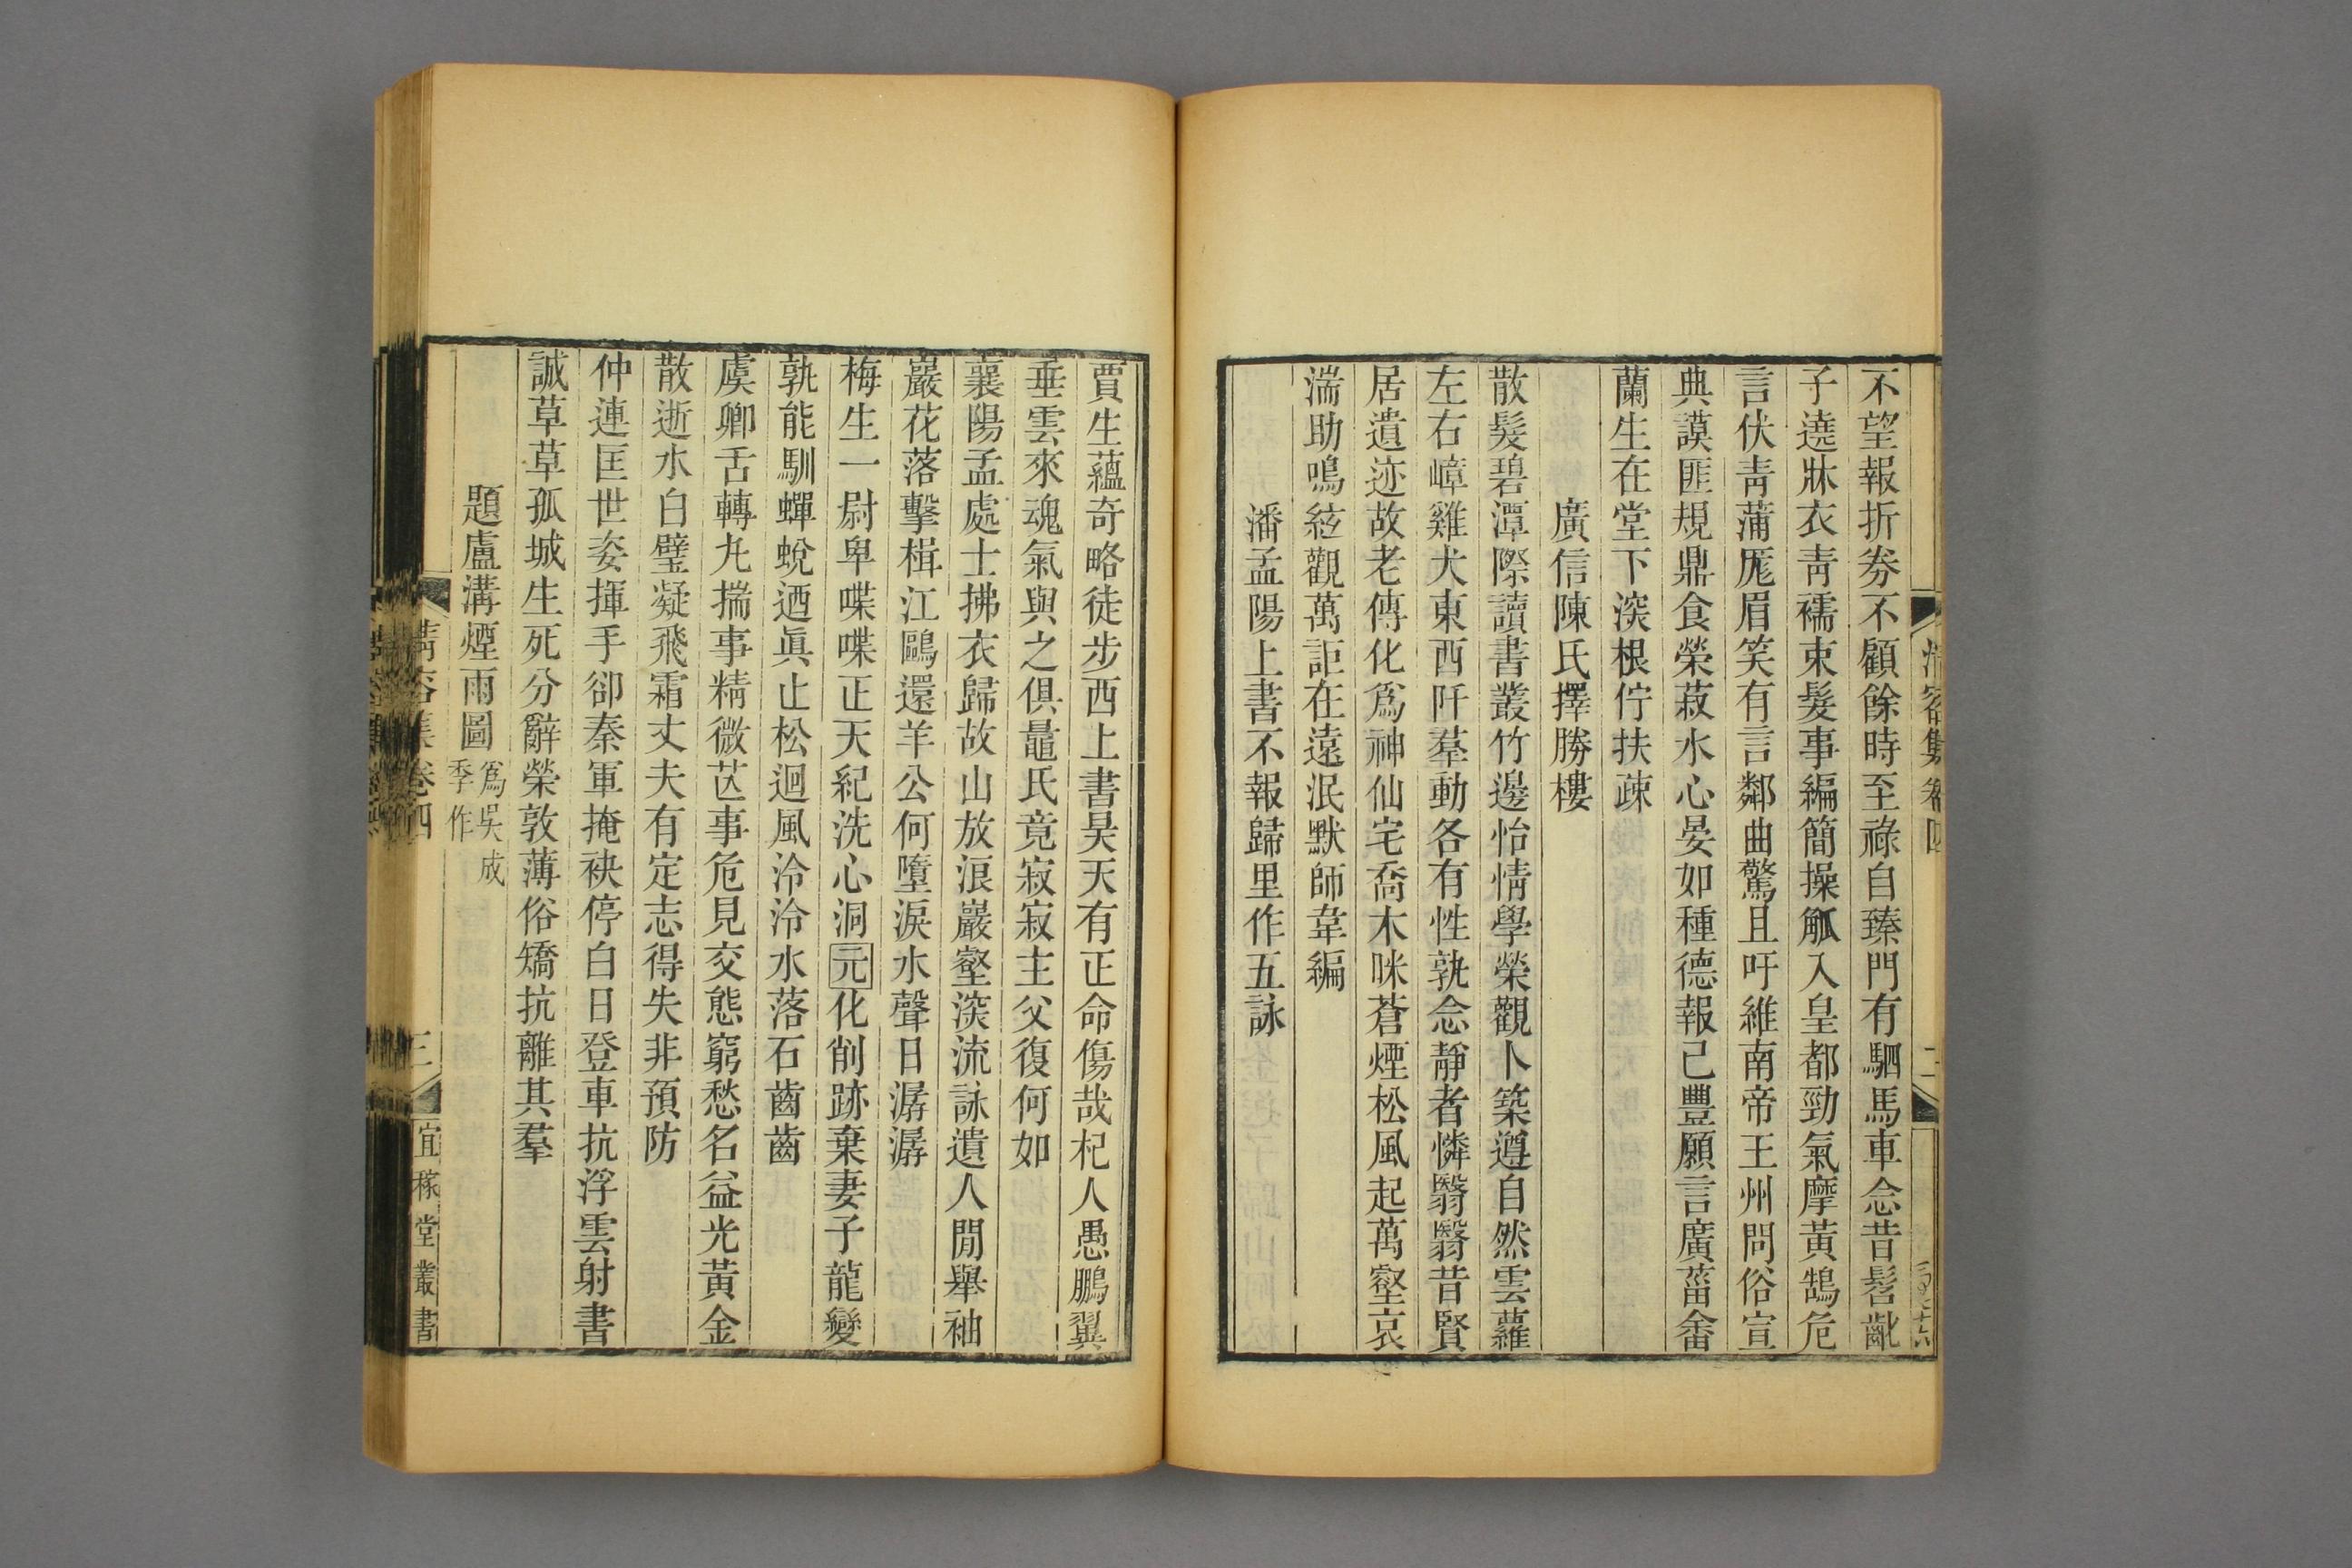 清容集 卷四
二
不望報折券不顧餘時至祿自臻門有駟馬車念昔髫齔
子遶牀衣靑襦束髮事編簡操觚入皇都勁氣摩黃鵠危
言伏靑蒲厖眉笑有言鄰曲驚且吁維南帝王州問俗宣
典謨匪規鼎食榮菽水心晏如種德報已豐願言廣菑畬
蘭生在堂下深根佇扶疎
廣信陳氏擇勝樓
散髮碧潭際讀書叢竹邊怡情學榮觀卜築遵自然雲蘿
左右嶂雞犬東西阡羣動各有性孰念靜者憐翳翳昔賢
居遺迹故老傳化爲神仙宅喬木眯蒼煙松風起萬壑哀
湍助鳴絃觀萬詎在遠泯默師韋編
潘孟陽上書不報歸里作五詠
賈生蘊奇略徒步西上書昊天有正命傷哉杞人愚鵬翼
垂雲來魂氣與之俱鼂氏竟寂寂主父復何如
襄陽孟處士拂衣歸故山放浪巖壑深流詠遺人閒舉袖
巖花落擊楫江鷗還羊公何墮淚水聲日潺潺
梅生一尉卑喋喋正天紀洗心洞元化削跡棄妻子龍變
孰能馴蟬蛻迺眞止松迴風泠泠水落石齒齒
虞卿舌轉丸揣事精微苉事危見交態窮愁名益光黃金
散逝水白璧凝飛霜丈夫有定志得失非預防
仲連匡世姿揮手卻秦軍掩袂停白日登車抗浮雲射書
誠草草孤城生死分辭榮敦薄俗矯抗離其羣
題盧溝煙雨圖 爲吳成季作
清容集 卷四
三
宜稼堂叢書